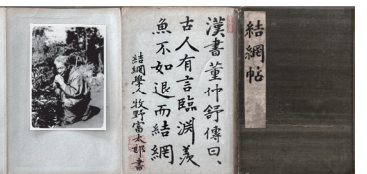 結網帖
漢書董仲舒傳曰、
古人有言臨淵羨
魚不如退而結網
結網學人牧野富太郎書